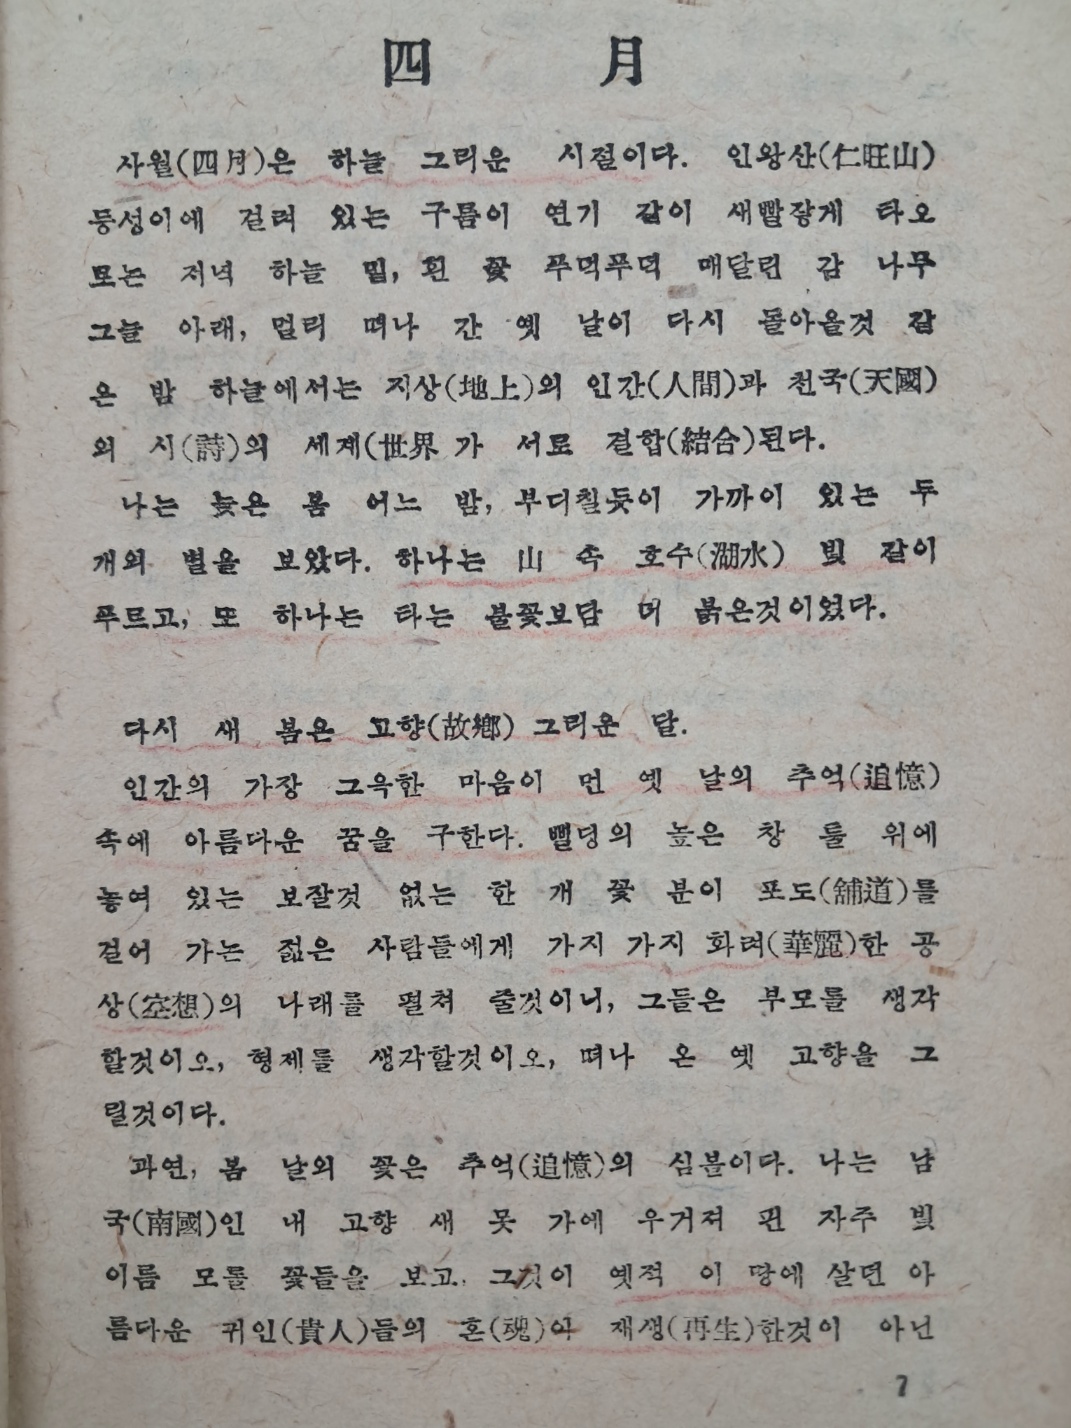 四 月
사월(四月)은 하늘 그리운 시절이다. 인왕산(仁旺山)
등성이에 걸려 있는 구름이 연기 같이 새빨갛게 타오
르는 저녁 하늘 밑, 흰 꽃 푸먹푸먹 매달린 감 나무
그늘 아래, 멀리 떠나 간 옛 날이 다시 돌아올것 같
은 밤 하늘에서는 지상(地上)의 인간(人間)과 천국(天國)
의 시(詩)의 세계(世界 가 서로 결합(結合)된다.
나는 늦은 봄 어느 밤, 부디칠듯이 가까이 있는 두
개의 별을 보았다. 하나는 山 속 호수(湖水) 빛 같이
푸르고, 또 하나는 타는 불꽃보담 더 붉은것이었다.
다시 새 봄은 고향(故鄕) 그리운 달.
인간의 가장 그윽한 마음이 먼 옛 날의 추억(追憶)
속에 아름다운 꿈을 구한다. 삘딩의 높은 창 틀 위에
놓여 있는 보잘것 없는 한 개 꽃 분이 포도(舖道)를
걸어 가는 젊은 사람들에게 가지 가지 화려(華麗)한 공
상(空想)의 나래를 펼쳐 줄것이니, 그들은 부모를 생각
할것이오, 형제를 생각할것이오, 떠나 온 옛 고향을 그
릴것이다.
과연, 봄 날의 꽃은 추억(追憶)의 심볼이다. 나는 남
국(南國)인 내 고향 새 못 가에 우거져 핀 자주 빛
이름 모를 꽃들을 보고, 그것이 옛적 이 땅에 살던 아
름다운 귀인(貴人)들의 혼(魂)이 재생(再生)한것이 아닌
7